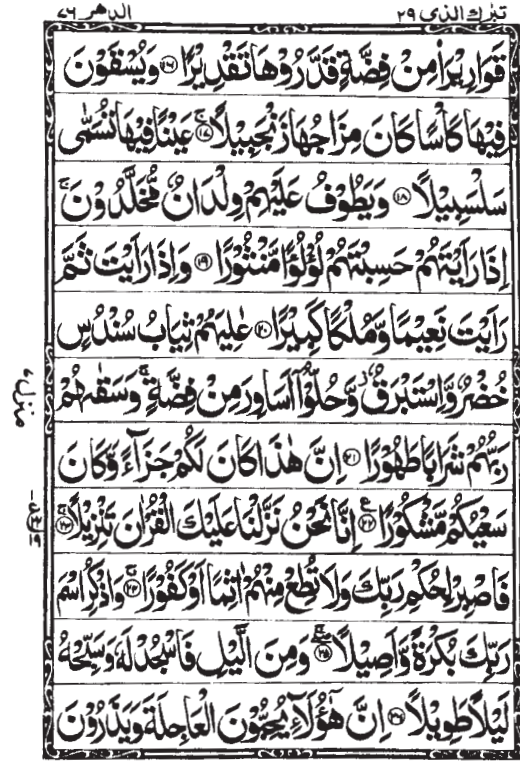 تبٰرك الذی ٢٩
الدھر ٧٦
قَوَارِیْرَا۟ مِنْ فِضَّةٍ قَدَّرُوْهَا تَقْدِیْرًا ﴿١٦﴾ وَیُسْقَوْنَ
فِیْهَا كَاْسًا كَانَ مِزَاجُهَا زَنْجَبِیْلًا ﴿١٧﴾ عَیْنًا فِیْهَا تُسَمّٰی
سَلْسَبِیْلًا ﴿١٨﴾ وَیَطُوْفُ عَلَیْهِمْ وِلْدَانٌ مُّخَلَّدُوْنَ ۚ
اِذَا رَاَیْتَهُمْ حَسِبْتَهُمْ لُؤْلُؤًا مَّنْثُوْرًا ﴿١٩﴾ وَاِذَا رَاَیْتَ ثَمَّ
رَاَیْتَ نَعِیْمًا وَّمُلْكًا كَبِیْرًا ﴿٢٠﴾ عٰلِیَهُمْ ثِیَابُ سُنْدُسٍ
خُضْرٌ وَّاِسْتَبْرَقٌ ؗ وَّحُلُّوْۤا اَسَاوِرَ مِنْ فِضَّةٍ ۚ وَسَقٰىهُمْ
رَبُّهُمْ شَرَابًا طَهُوْرًا ﴿٢١﴾ اِنَّ هٰذَا كَانَ لَكُمْ جَزَآءً وَّكَانَ
سَعْیُكُمْ مَّشْكُوْرًا ﴿٢٢﴾ ع اِنَّا نَحْنُ نَزَّلْنَا عَلَیْكَ الْقُرْاٰنَ تَنْزِیْلًا ﴿٢٣﴾ ۚ
فَاصْبِرْ لِحُكْمِ رَبِّكَ وَلَا تُطِعْ مِنْهُمْ اٰثِمًا اَوْ كَفُوْرًا ﴿٢٤﴾ ۚ وَاذْكُرِ اسْمَ
رَبِّكَ بُكْرَةً وَّاَصِیْلًا ﴿٢٥﴾ وَمِنَ الَّیْلِ فَاسْجُدْ لَهٗ وَسَبِّحْهُ
لَیْلًا طَوِیْلًا ﴿٢٦﴾ اِنَّ هٰۤؤُلَآءِ یُحِبُّوْنَ الْعَاجِلَةَ وَیَذَرُوْنَ
منزل ٧